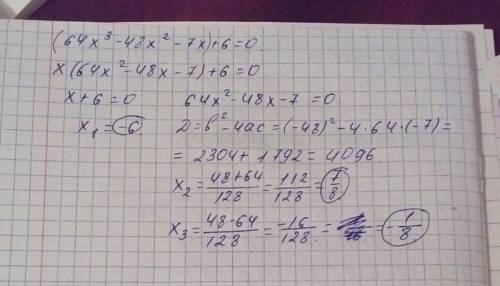 (64x³-48x²-7x)+6=0.
x(64x²-48x-7)+6=0
x+6=0 64x²-48x-7=0.
x₁=-6. D=b²-4ac=(-48)²-4·64·(-7)=
=2304+1792=4096.
x₂=48+64/128=112/128=7/8
x₃=48-64/128=-16/128.= =-1/8